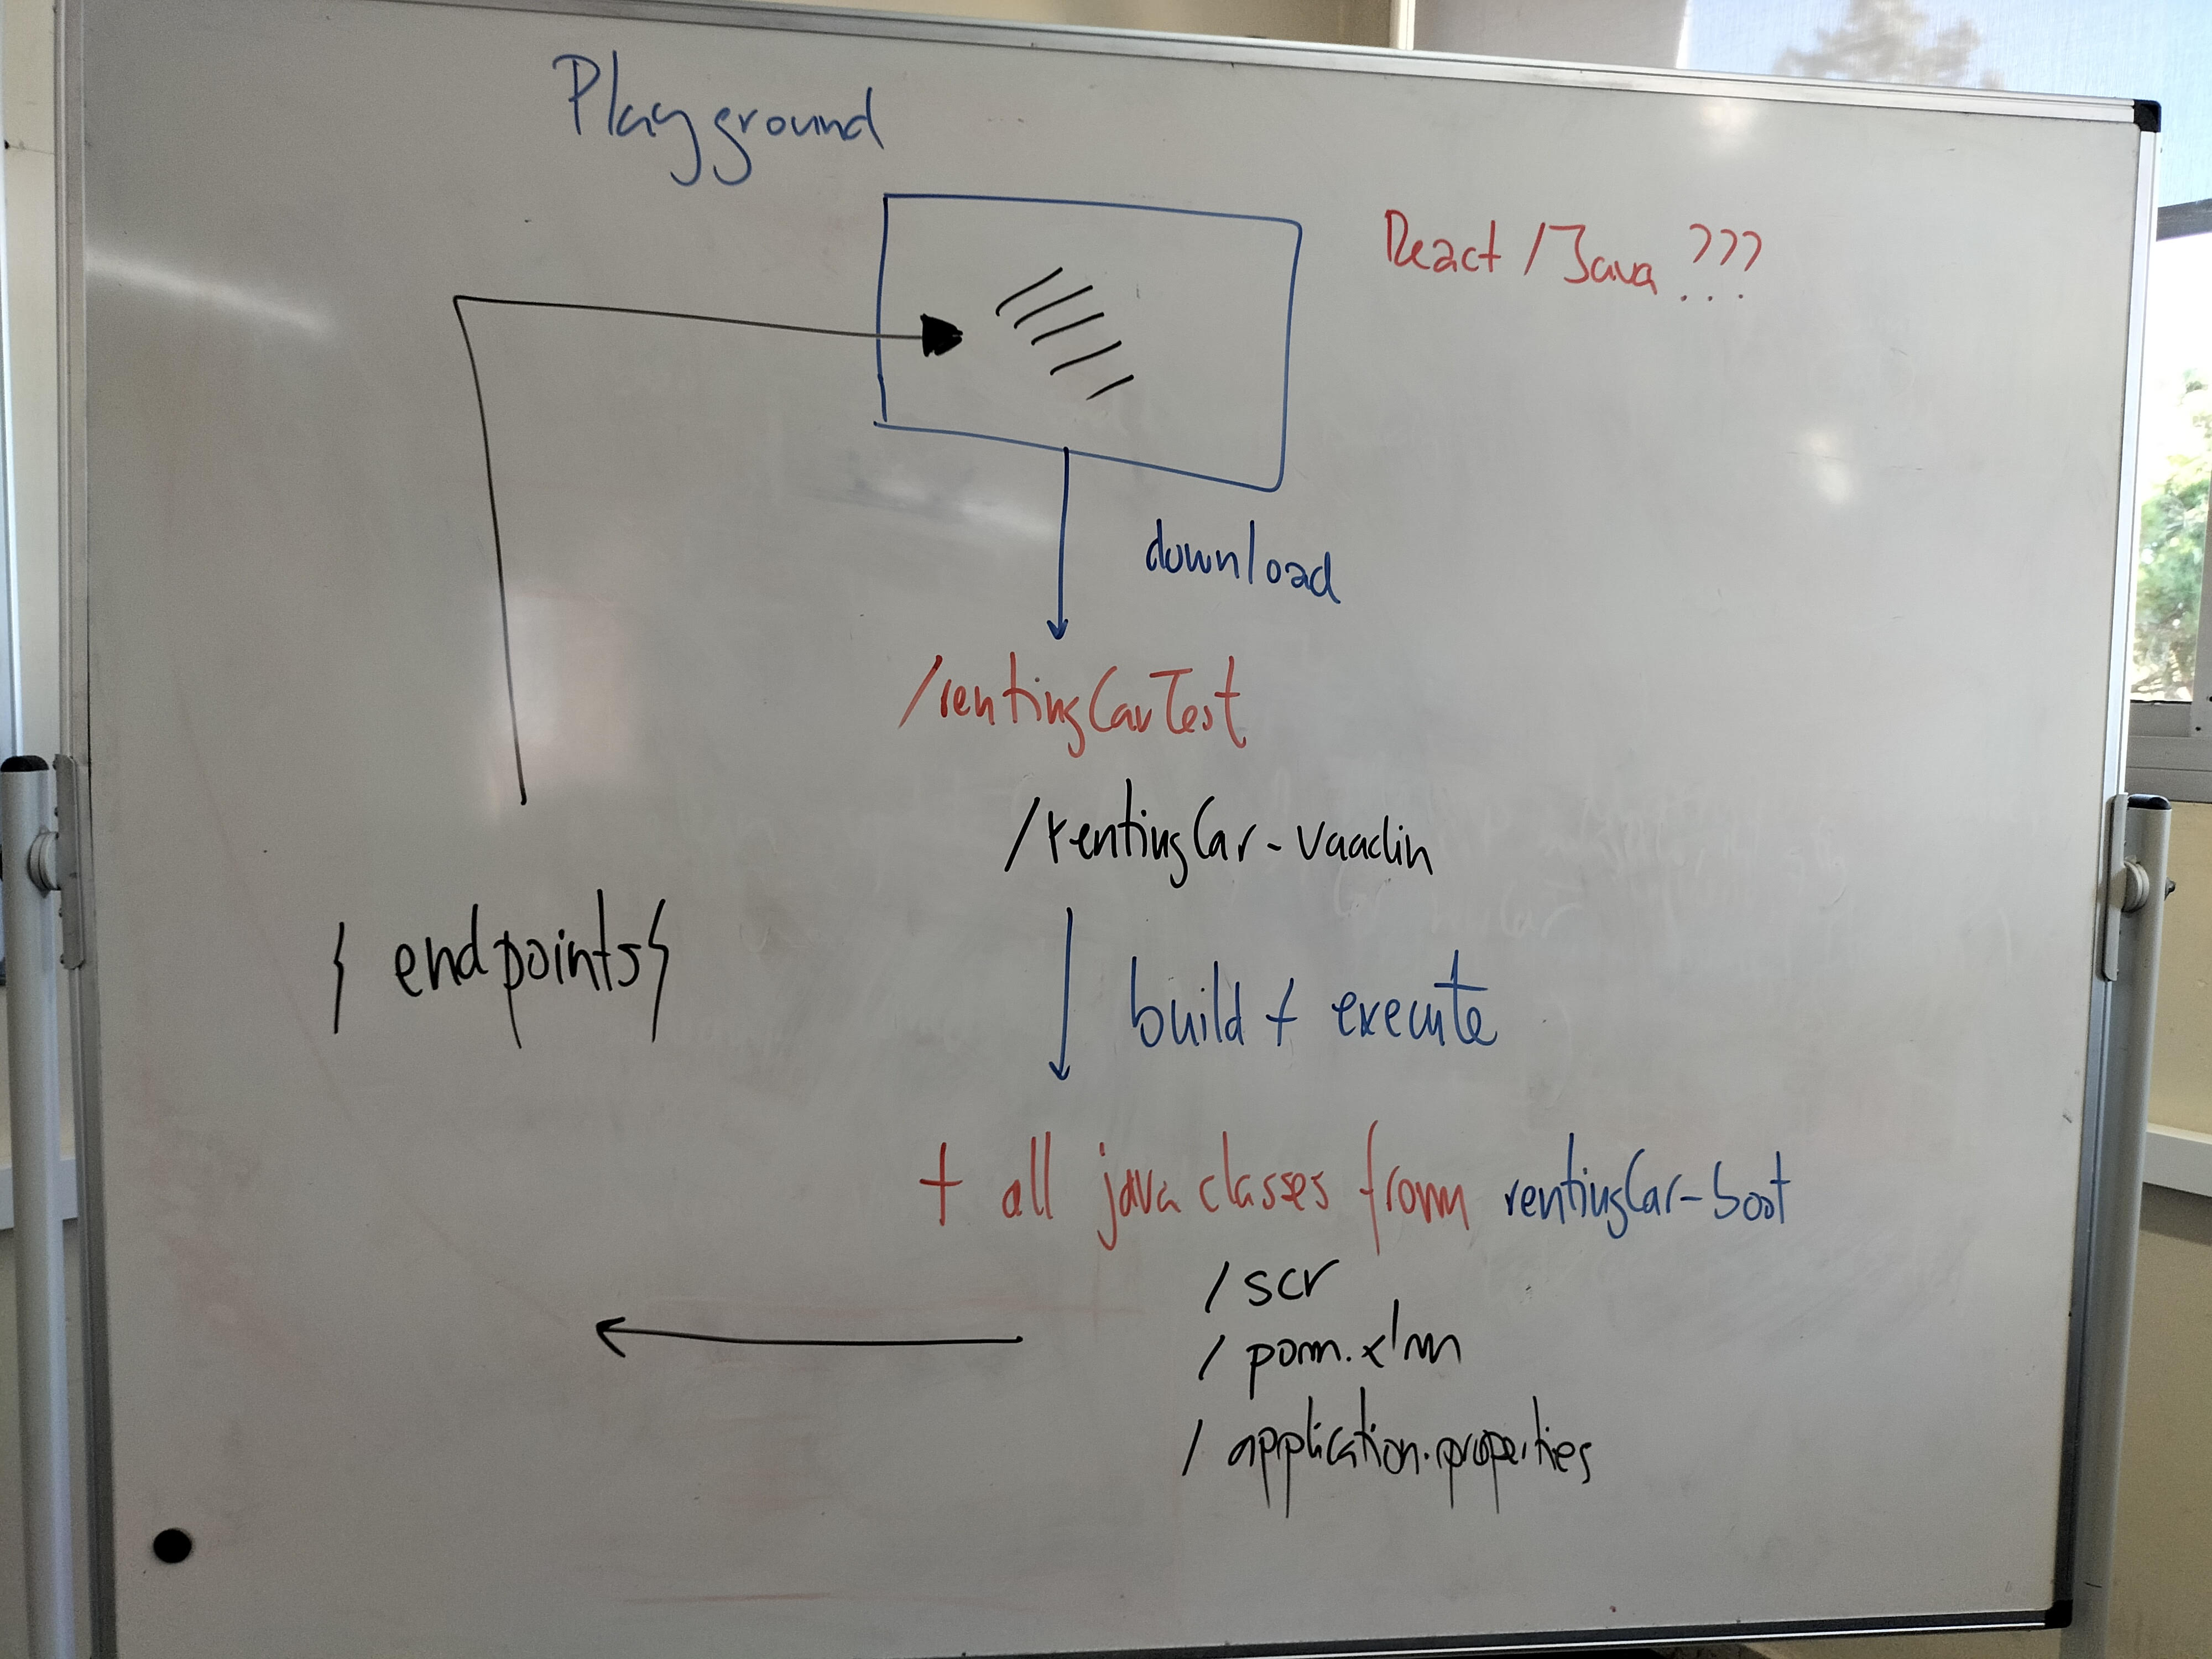 Playground
React / Java ???
download
/rentingCarTest
/rentingCar-vaadin
{ endpoints }
build + execute
+ all java classes from rentingCar-boot
/ scr
/ pom.xlm
/ application.properties